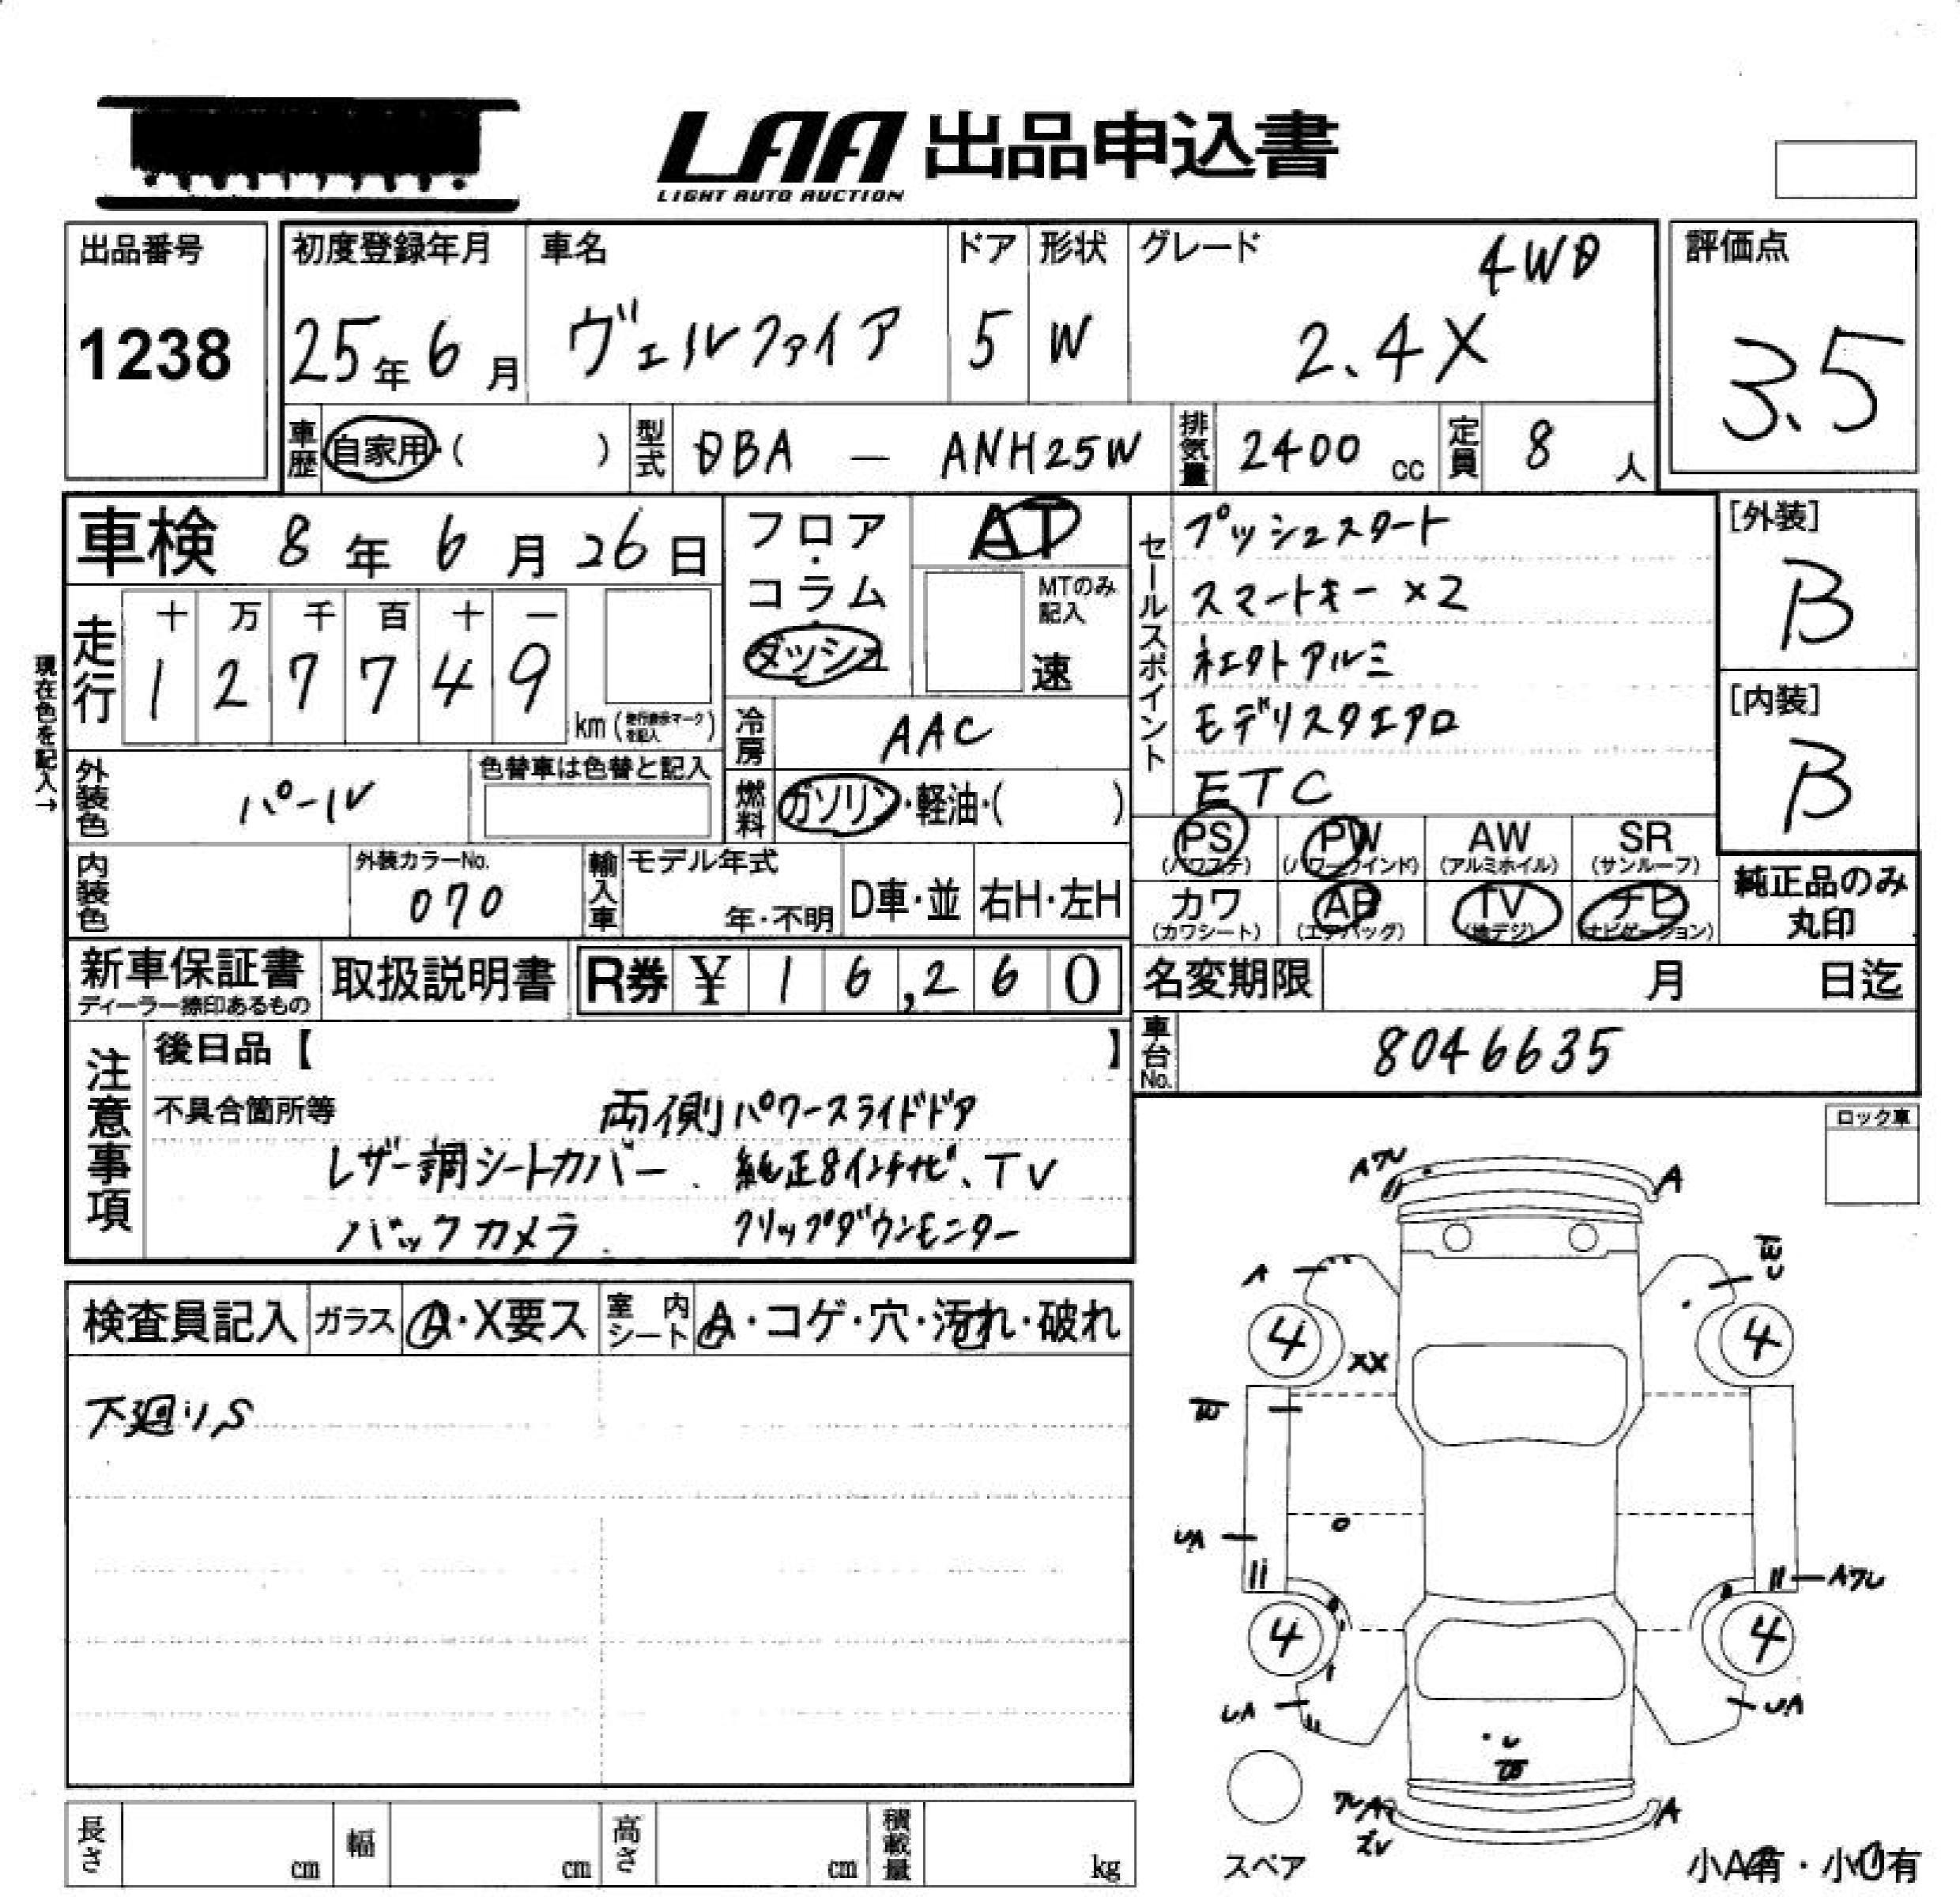 LAA 出品申込書
LIGHT AUTO AUCTION
出品番号
1238
初度登録年月
25年6月
車名
ヴェルファイア
ドア
5
形状
W
グレード
4WD
2.4X
評価点
3.5
車歴
自家用・( )
型式
DBA — ANH25W
排気量
2400 cc
定員
8 人
車検 8年 6月 26日
現在色を記入→
走行
十 万 千 百 十 一
1 2 7 7 4 9
km (走行表示マークを記入)
フロア・コラム
ダッシュ
AT
MTのみ記入
速
冷房
AAC
燃料
ガソリン・軽油・( )
セールスポイント
プッシュスタート
スマートキー×2
社外アルミ
モデリスタエアロ
ETC
[外装]
B
[内装]
B
外装色
パール
色替車は色替と記入
内装色
外装カラーNo.
070
輸入車
モデル年式
年・不明
D車・並
右H・左H
PS
(パワステ)
PW
(パワーウインド)
AW
(アルミホイル)
SR
(サンルーフ)
カワ
(カワシート)
AB
(エアバッグ)
TV
(地デジ)
ナビ
(ナビゲーション)
純正品のみ
丸印
新車保証書
ディーラー捺印あるもの
取扱説明書
R券 ¥ 16,260
名変期限 月 日迄
車台No.
8046635
注意事項
後日品【 】
不具合箇所等
両側パワースライドドア
レザー調シートカバー、純正8インチナビ、TV
バックカメラ、フリップダウンモニター
ロック車
検査員記入
ガラス
A・X要ス
室内シート
A・コゲ・穴・汚れ・破れ
下廻りS
Aワレ
A
A
4
XX
4
UA
Aワレ
4
4
UA
UA
A
スペア
小A有・小U有
長さ cm
幅 cm
高さ cm
積載量 kg